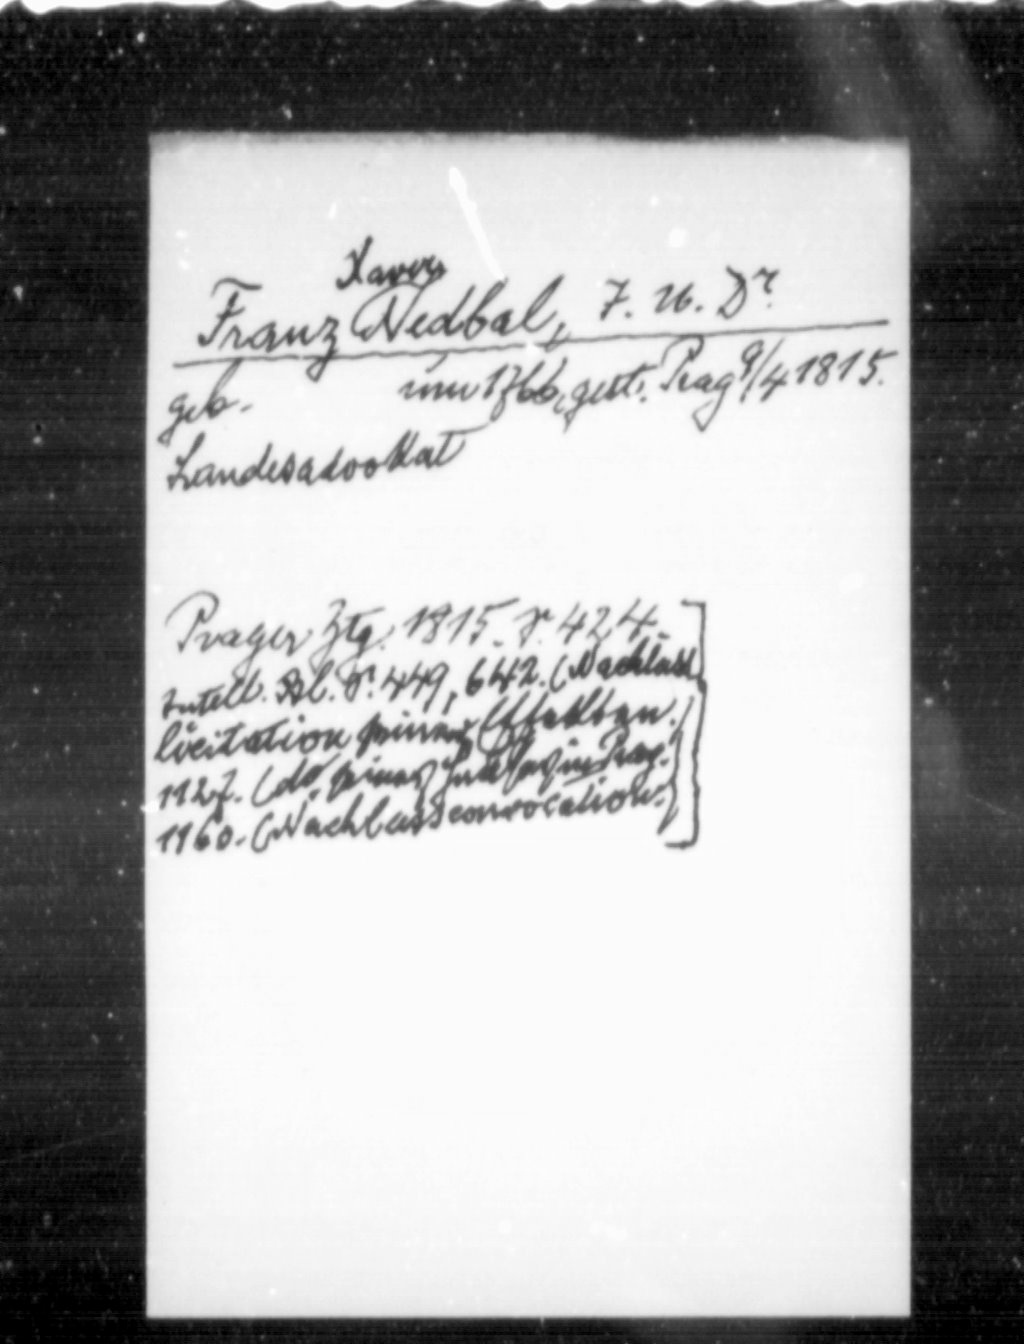 Xaver
Franz Nedbal, J. U. Dr.
geb. um 1766, gest. Prag 9/4 1815.
Landesadvokat
Prager Ztg. 1815. S. 424
Intell. Bl. S. 449, 642. (Nachlass
licitation seiner Effekten.)
1127. (do seiner in Prag.)
1160. (Nachlassconvocation.)